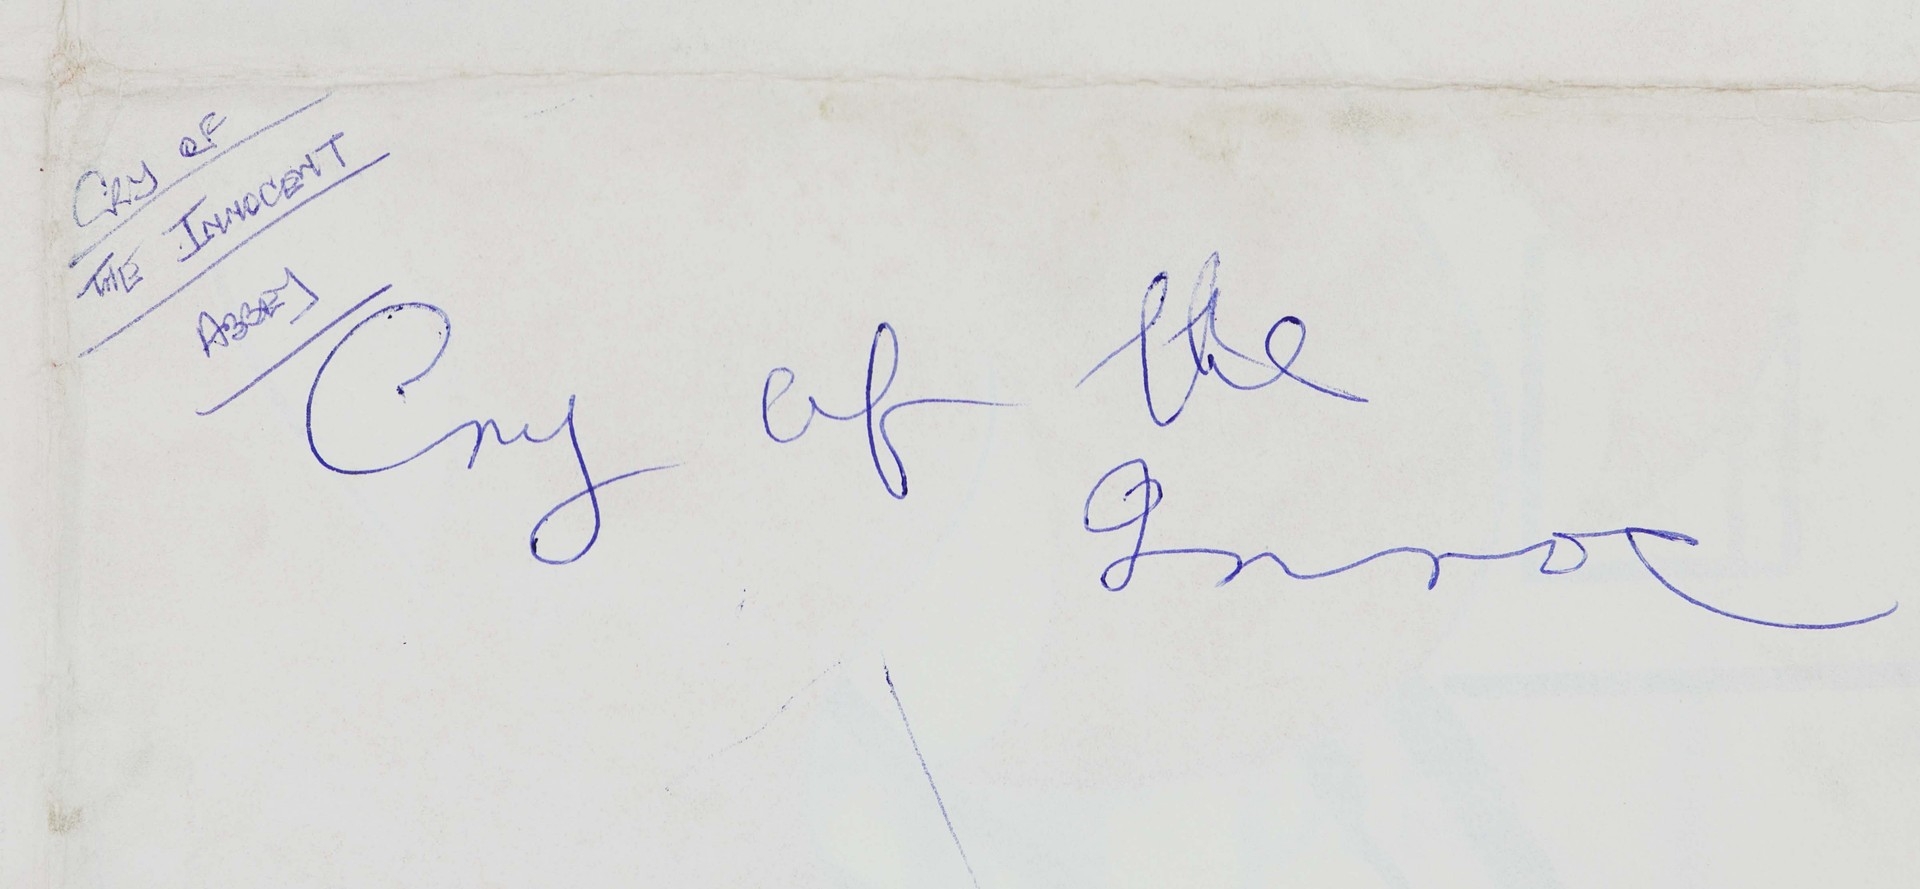 CRY OF
THE INNOCENT
ABBEY
Cry of the
Innoc